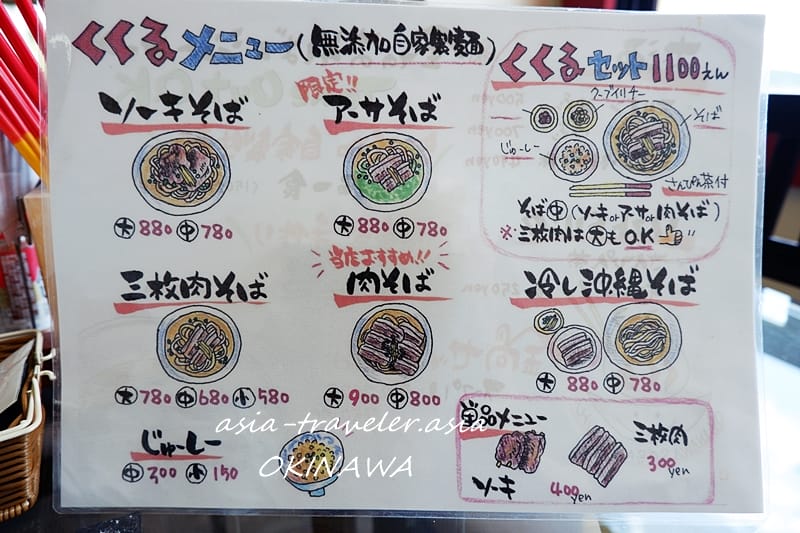 くくるメニュー(無添加自家製麺)
限定!!
ソーキそば
大880 中780
アーサそば
大880 中780
くくるセット1100えん
クーブイリチー
そば
じゅーしー
さんぴん茶付
そば中(ソーキorアーサor肉そば)
※三枚肉は大もO.K
三枚肉そば
大780 中680 小580
当店おすすめ!!
肉そば
大900 中800
冷し沖縄そば
大880 中780
じゅーしー
中300 小150
単品メニュー
ソーキ
400yen
三枚肉
300yen
asia-traveler.asia
OKINAWA